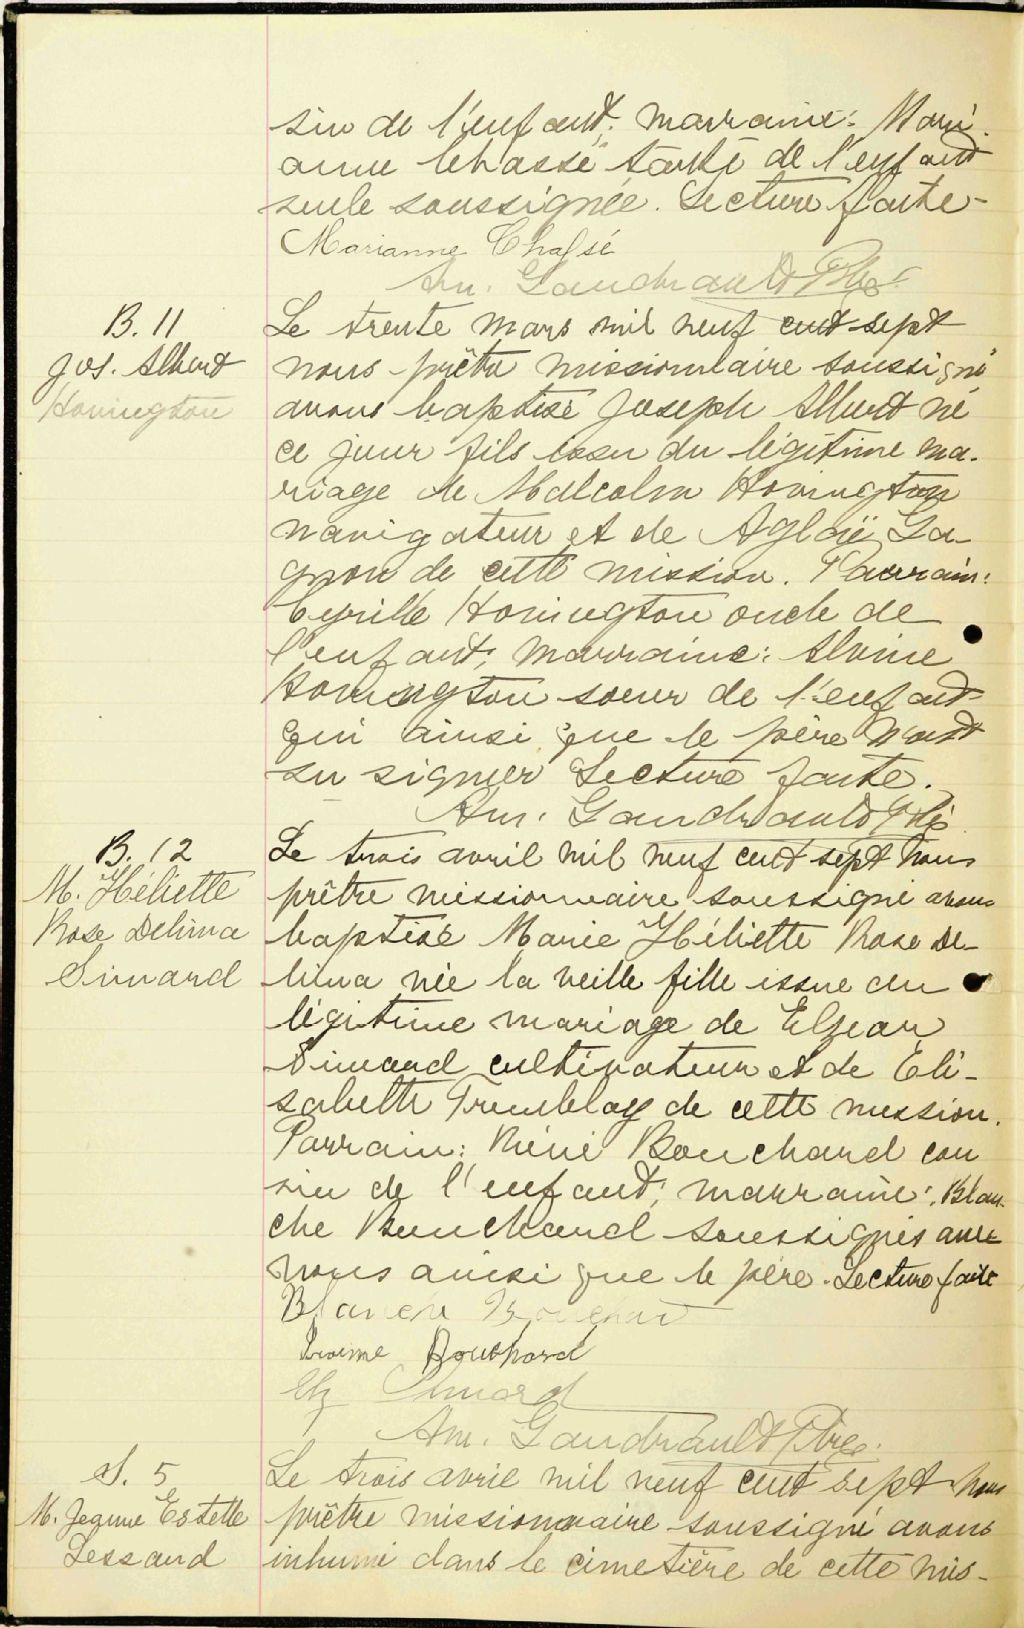 sin de l'enfant; marraine: Mari-
anne Chassé tante de l'enfant
seule soussignée. Lecture faite-
Marianne Chassé
Am. Gaudreault Ptre
B. 11
Jos. Albert
Hovington
Le trente mars mil neuf cent sept
nous prêtre missionnaire soussigné
avons baptisé Joseph Albert né
ce jour fils issu du légitime ma-
riage de Malcolm Hovington
navigateur et de Aglaë Ga-
gnon de cette mission. Parrain:
Cyrille Hovington oncle de
l'enfant; marraine: Alvine
Hovington soeur de l'enfant
qui ainsi que le père n'ont
su signer Lecture faite.
Am. Gaudreault Ptre
B. 12
M. Héliette
Rose Delima
Simard
Le trois avril mil neuf cent sept nous
prêtre missionnaire soussigné avons
baptisé Marie Héliette Rose De-
lima née la veille fille issue du
légitime mariage de Elzear
Simard cultivateur et de Eli-
sabeth Tremblay de cette mission.
Parrain: Bouchard cou
sin de l'enfant; marraine: Blan-
che Bouchard soussignés avec
nous ainsi que le père. Lecture faite
Blanche Bouchard
Bouchard
Elz Simard
Am. Gaudreault Ptre.
S. 5
M. Jeanne Estelle
Lessard
Le trois avril mil neuf cent sept nous
prêtre missionnaire soussigné avons
inhumé dans le cimetière de cette mis-